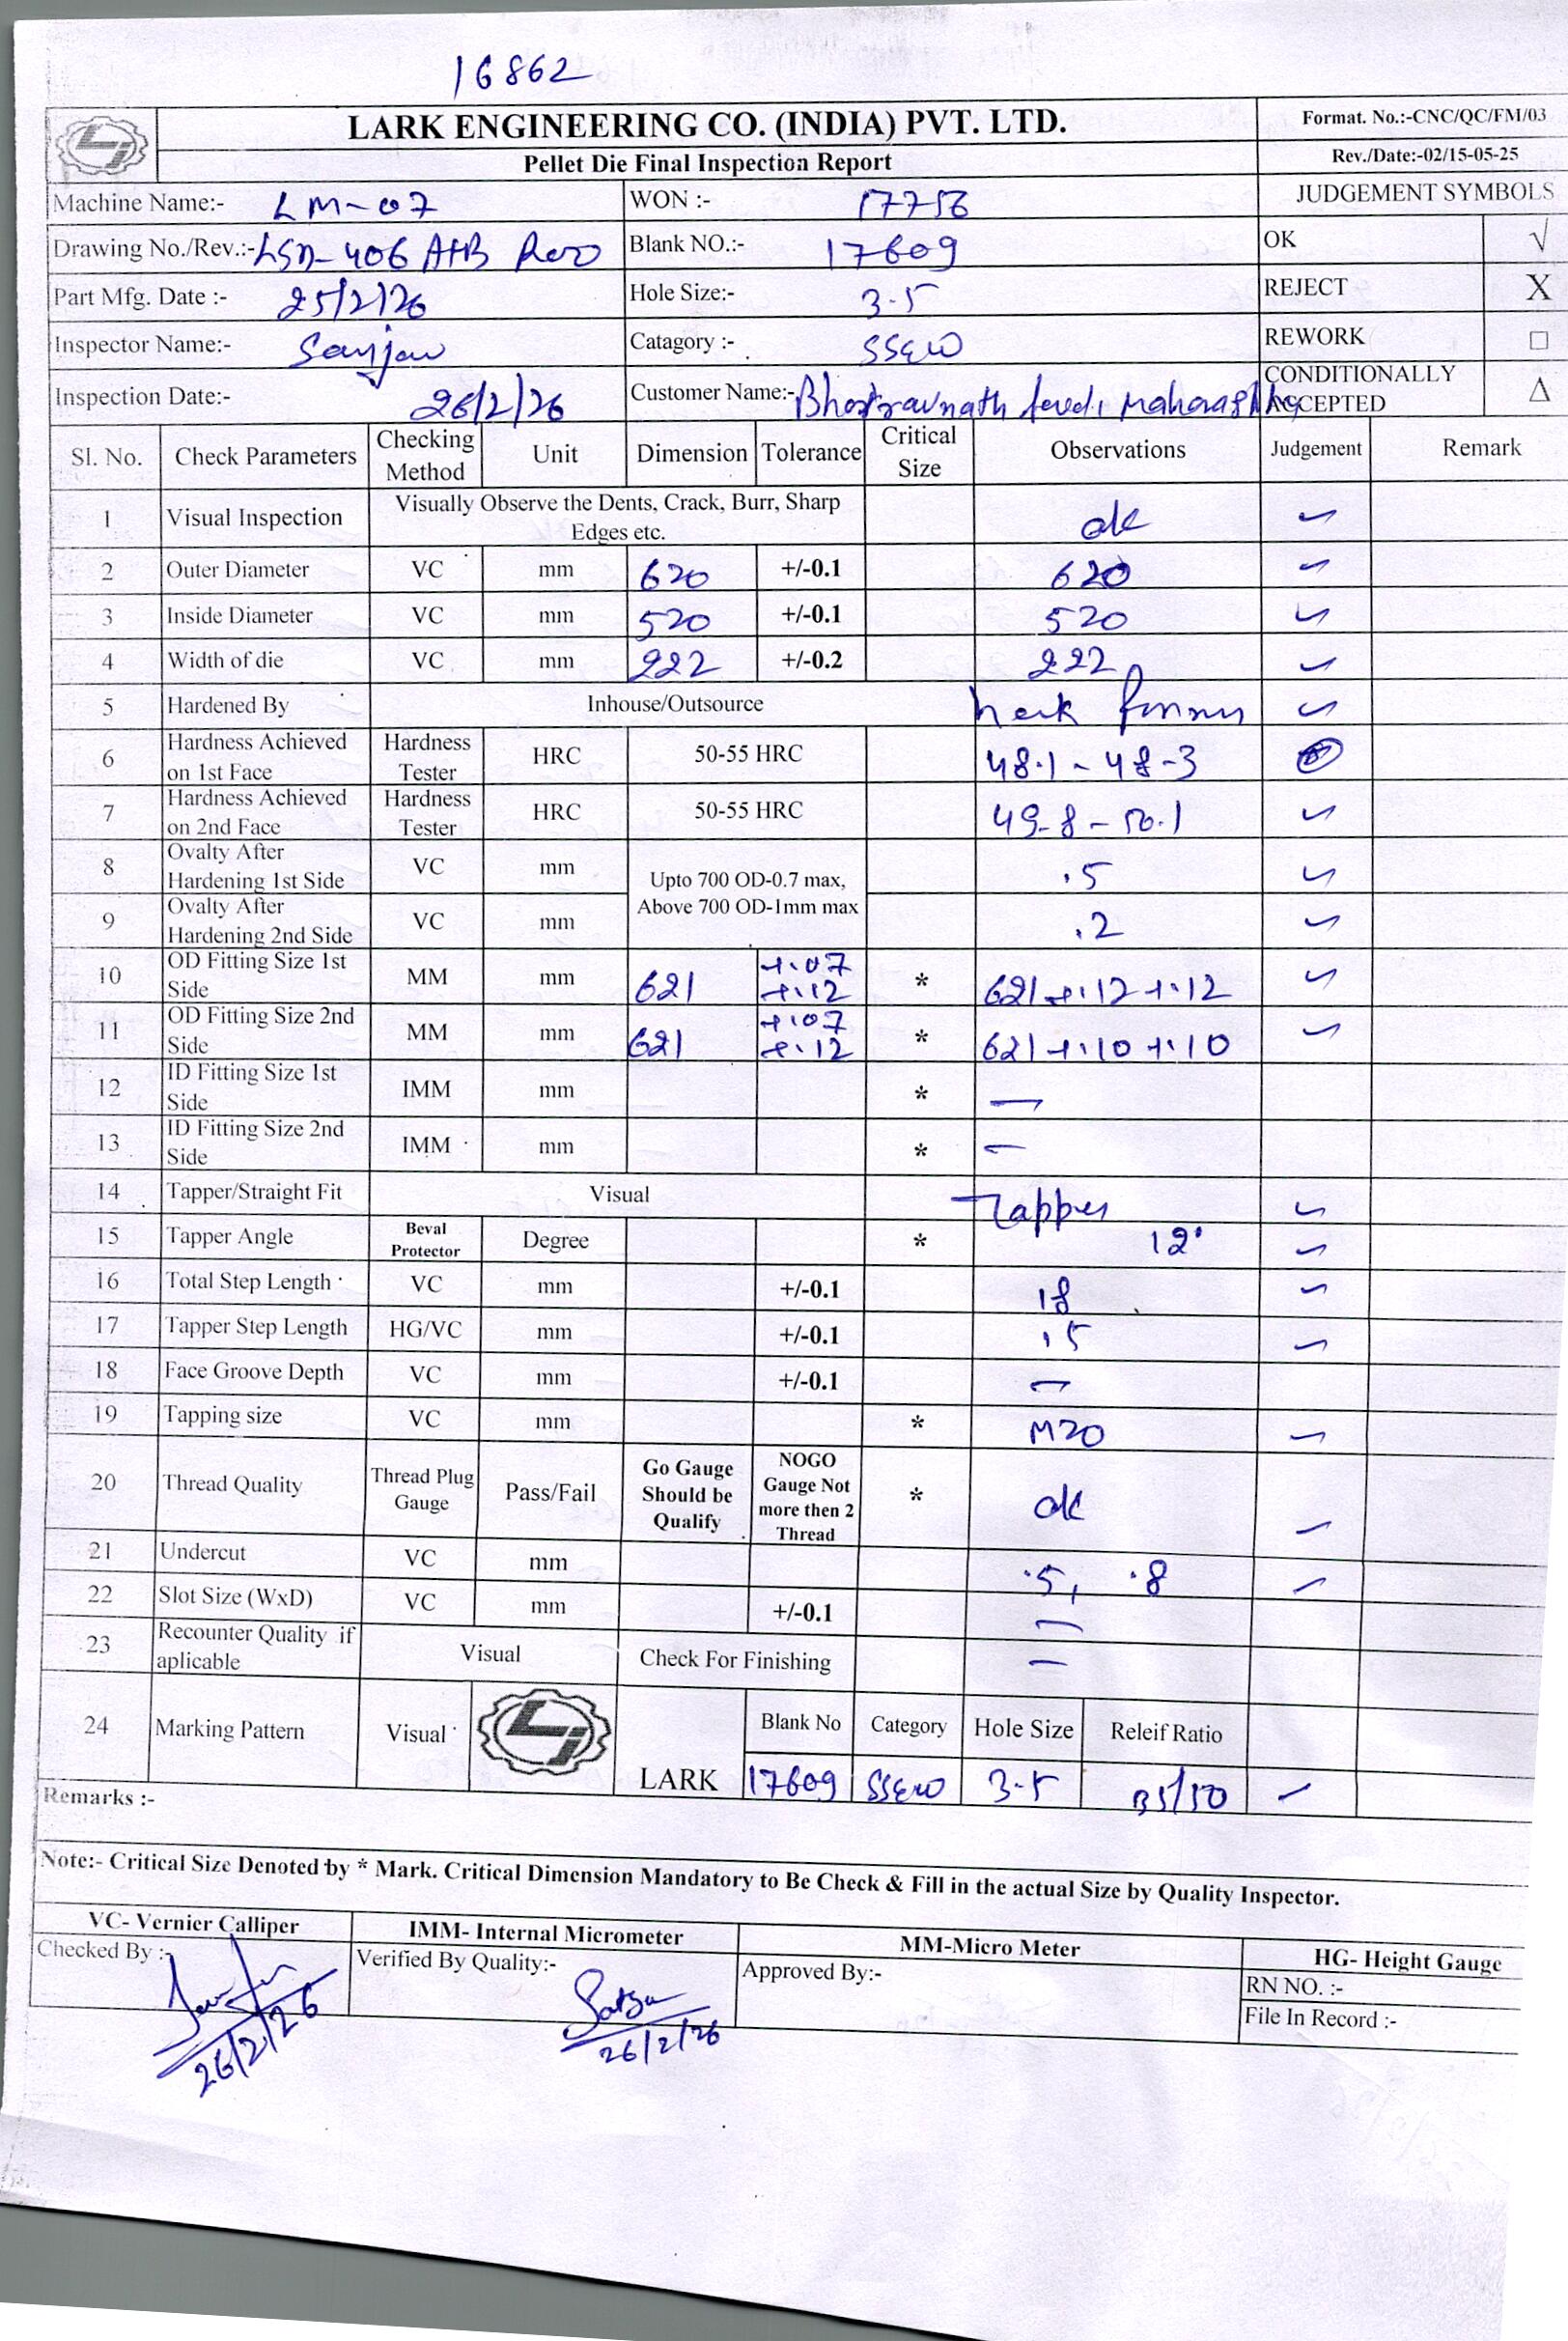 16862
LARK ENGINEERING CO. (INDIA) PVT. LTD.
Format. No.:-CNC/QC/FM/03
Pellet Die Final Inspection Report
Rev./Date:-02/15-05-25
Machine Name:- LM-07 WON :- 17756 JUDGEMENT SYMBOLS
Drawing No./Rev.:- 406 A+B Blank NO.:- 17609 OK √
Part Mfg. Date :- 25/2/26 Hole Size:- 3.5 REJECT X
Inspector Name:- Sanjav Catagory :- SSEW REWORK □
Inspection Date:- 26/2/26 Customer Name:- CONDITIONALLY ACCEPTED Δ
Sl. No. Check Parameters Checking Method Unit Dimension Tolerance Critical Size Observations Judgement Remark
1 Visual Inspection Visually Observe the Dents, Crack, Burr, Sharp Edges etc. ok ✓
2 Outer Diameter VC mm 620 +/-0.1 620 ✓
3 Inside Diameter VC mm 520 +/-0.1 520 ✓
4 Width of die VC mm 222 +/-0.2 222 ✓
5 Hardened By Inhouse/Outsource ✓
6 Hardness Achieved on 1st Face Hardness Tester HRC 50-55 HRC 48.1 - 48-3
7 Hardness Achieved on 2nd Face Hardness Tester HRC 50-55 HRC 49-8 - 50.1 ✓
8 Ovalty After Hardening 1st Side VC mm Upto 700 OD-0.7 max, Above 700 OD-1mm max .5 ✓
9 Ovalty After Hardening 2nd Side VC mm .2 ✓
10 OD Fitting Size 1st Side MM mm 621 +.07 +.12 * 621 +.12 +.12 ✓
11 OD Fitting Size 2nd Side MM mm 621 +.07 +.12 * 621 +.10 +.10 ✓
12 ID Fitting Size 1st Side IMM mm * —
13 ID Fitting Size 2nd Side IMM mm * —
14 Tapper/Straight Fit Visual Tapper ✓
15 Tapper Angle Beval Protector Degree * 12° ✓
16 Total Step Length VC mm +/-0.1 18 ✓
17 Tapper Step Length HG/VC mm +/-0.1 15 ✓
18 Face Groove Depth VC mm +/-0.1 —
19 Tapping size VC mm * M20 ✓
20 Thread Quality Thread Plug Gauge Pass/Fail Go Gauge Should be Qualify NOGO Gauge Not more then 2 Thread * ok ✓
21 Undercut VC mm .5, .8 ✓
22 Slot Size (WxD) VC mm +/-0.1 —
23 Recounter Quality if aplicable Visual Check For Finishing —
24 Marking Pattern Visual LARK Blank No Category Hole Size Releif Ratio
17609 SSEW 3.5 35/50 ✓
Remarks :-
Note:- Critical Size Denoted by * Mark. Critical Dimension Mandatory to Be Check & Fill in the actual Size by Quality Inspector.
VC- Vernier Calliper IMM- Internal Micrometer MM-Micro Meter HG- Height Gauge
Checked By :- Verified By Quality:- Approved By:- RN NO. :-
File In Record :-
26/2/26 26/2/26